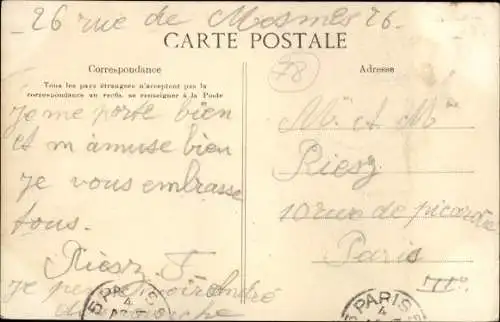 26 rue de Mesmes 26
CARTE POSTALE
78
Correspondance
Tous les pays étrangers n'acceptent pas la
correspondance au recto, se renseigner à la Poste
Je me porte bien
et m'amuse bien
Je vous embrasse
tous.
Riesz F.
je André
dimanche
Adresse
Mr et Mme
Riesz
10 rue de picardie
Paris
IIIe
PARIS
4
PARIS
4